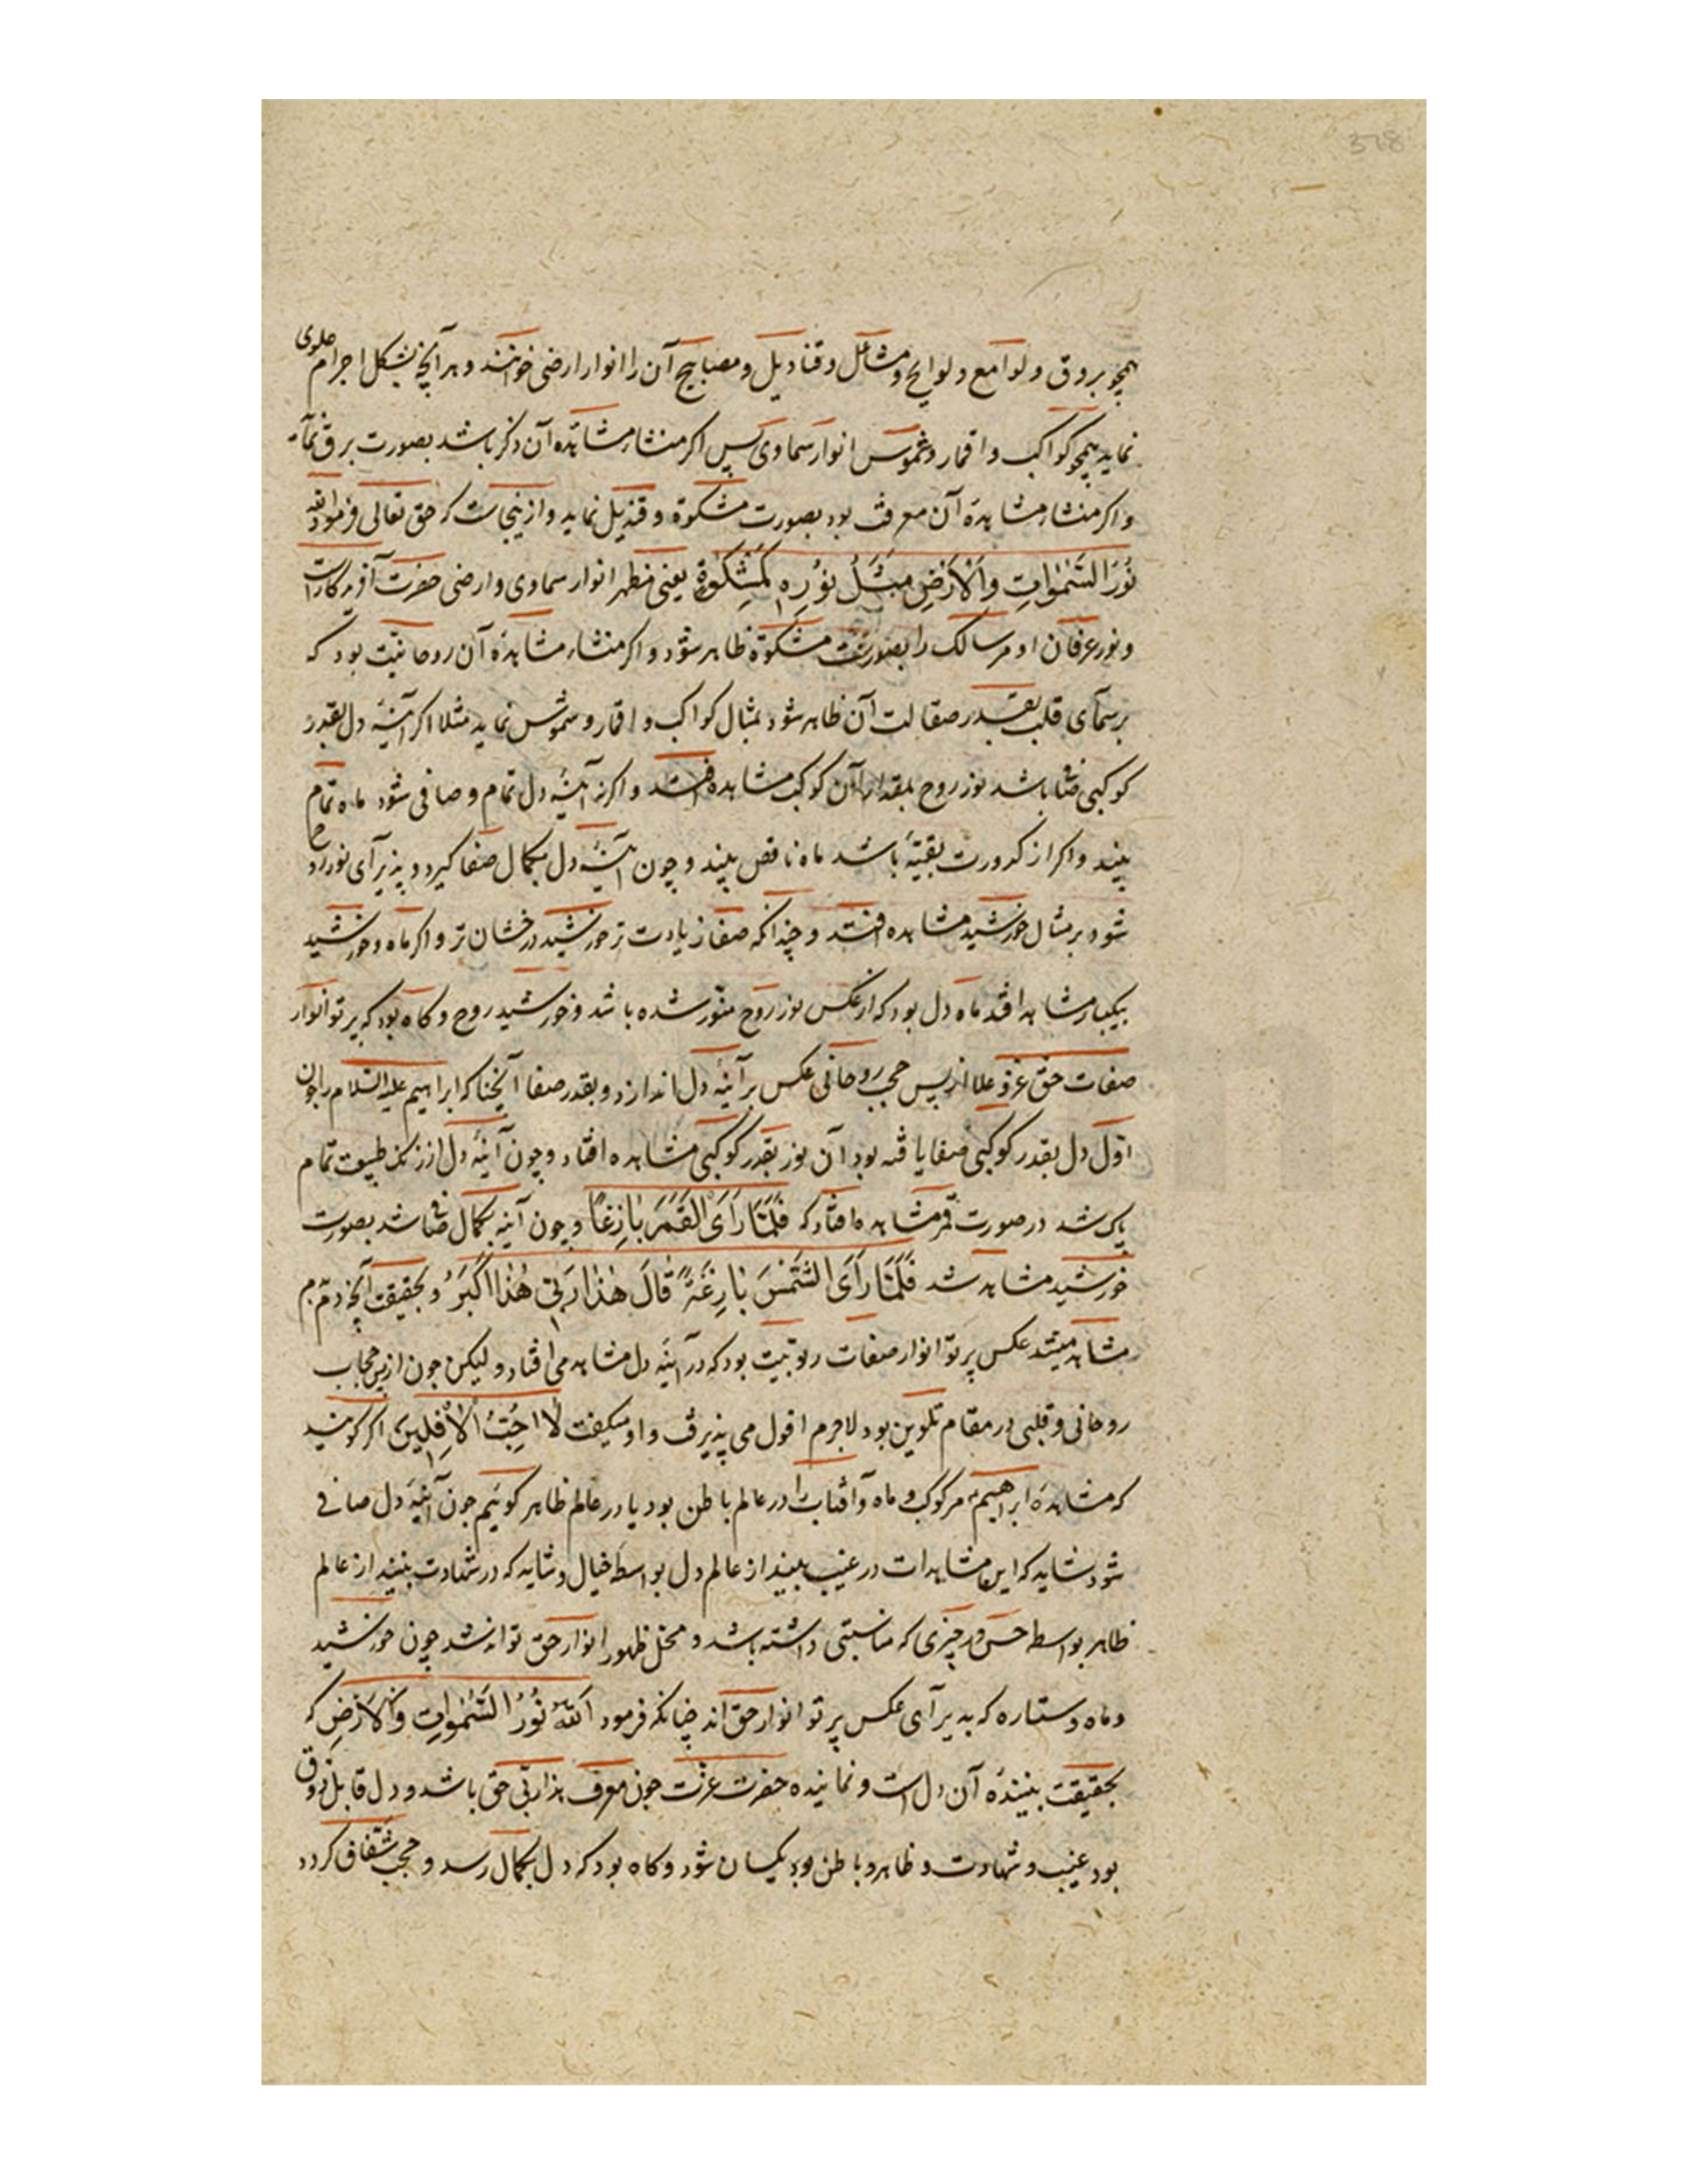 همچو بروق و لوامع و لوایح و مشاعل و قنادیل و مصابیح آن را انوار ارضی خوانند و هر آنچه بشکل اجرام علوی
نماید همچو کواکب و اقمار و شموس انوار سماوی پس اگر منشاء مشاهده آن ذکر باشد بصورت برق نماید
و اگر منشاء مشاهدهٔ آن معرفت بود بصورت مشکوة و قندیل نماید و ازینجاست که حق تعالی فرمود الله
نُورُ السَّمٰوَاتِ وَالْاَرْضِ مَثَلُ نُورِهِ كَمِشْكٰوةٍ یعنی مظهر انوار سماوی و ارضی حضرت آفریدگارست
و نور عرفان او مر سالک را بصورت مشکوة ظاهر شود و اگر منشاء مشاهدهٔ آن روحانیت بود که
بر سمآی قلب بقدر صقالت آن ظاهر شود بمثال کواکب و اقمار و شموس نماید مثلا اگر آینهٔ دل بقدر
کوکبی صافی باشد نور روح بمقدار آن کوکب مشاهده افتد و اگر آینهٔ دل تمام و صافی شود ماه تمام
بیند و اگر از کدورت بقیتهٔ باشد ماه ناقص بیند و چون آینهٔ دل بکمال صفا گیرد و پذیرآی نور روح
شود بر مثال خورشید مشاهده افتد و چندانکه صفا زیادت تر خورشید درخشان تر و اگر ماه و خورشید
بیکبار مشاهده افتد ماه دل بود که از عکس نور روح منور شده باشد و خورشید روح و کاه بود که پرتو انوار
صفات حق عز و علا از پس حجب روحانی عکس بر آینهٔ دل اندازد و بقدر صفا آنچنانکه ابراهیم علیه السلام را چون
اول دل بقدر کوکبی صفا یافته بود آن نور بقدر کوکبی مشاهده افتاد و چون آینهٔ دل از زنک طبیعت تمام
پاک شد در صورت قمر مشاهده افتاد که فَلَمَّا رَاَى الْقَمَرَ بَازِغًا و چون آینه بکمال صافی شد بصورت
خورشید مشاهده شد فَلَمَّا رَاَى الشَّمْسَ بَازِغَةً قَالَ هٰذَا رَبِّي هٰذَا اَكْبَرُ و بحقیقت آنچه دمبدم
مشاهد میشد عکس پرتو انوار صفات ربوبیت بود که در آینهٔ دل مشاهده می افتاد و لیکن چون از پس حجاب
روحانی و قلبی در مقام تلوین بود لاجرم افول می پذیرفت و او میکفت لَا اُحِبُّ الْاٰفِلِينَ اگر گویند
که مشاهدهٔ ابراهیم مر کوکب و ماه و آفتاب را در عالم باطن بود یا در عالم ظاهر گوئیم چون آینهٔ دل صافی
شود شاید که این مشاهدات در غیب بیند از عالم دل بواسطهٔ خیال و شاید که در شهادت بیند از عالم
ظاهر بواسطه حس و در چیزی که مناسبتی داشته باشد و محل ظهور انوار حق تواند شد چون خورشید
و ماه و ستاره که پذیرآی عکس پرتو انوار حق اند چنانکه فرمود اَللّٰهُ نُورُ السَّمٰوَاتِ وَالْاَرْضِ که
بحقیقت بینندهٔ آن دل است و نماینده حضرت عزت چون معرف هذا ربی حق باشد و دل قابل ذوق
بود غیب و شهادت و ظاهر و باطن بود یکسان شود و کاه بود که دل بکمال رسد و حجب شفاف کردد